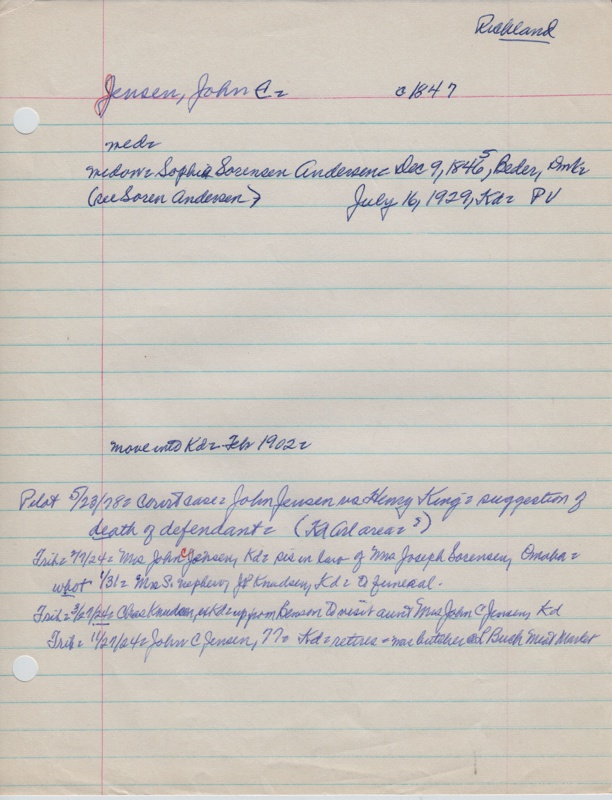 Richland
Jensen, John C= c1847
med=
medow= Sophia Sorensen Andersen= Dec 9, 1846 5, Beder, Dmk=
(see Soren Andersen) July 16, 1929, Kd= PV
move into Kd= Feb 1902=
Pilot 5/23/78= court case= John Jensen vs Henry King= suggestion of
death of defendant= (Kd Arl area= s)
Trib= 2/7/24= Mrs John C Jensen, Kd= sis in law of Mrs Joseph Sorensen, Omaha=
who+ 1/31= Mrs S. nephew JP Knudsen, Kd= to funeral.
Trib= 3/27/24= Chas Knudsen, Kd= up from Benson to visit aunt Mrs John C Jensen, Kd
Trib= 11/27/24= John C Jensen, 77= Kd= retires= was butcher Buck Meat Market